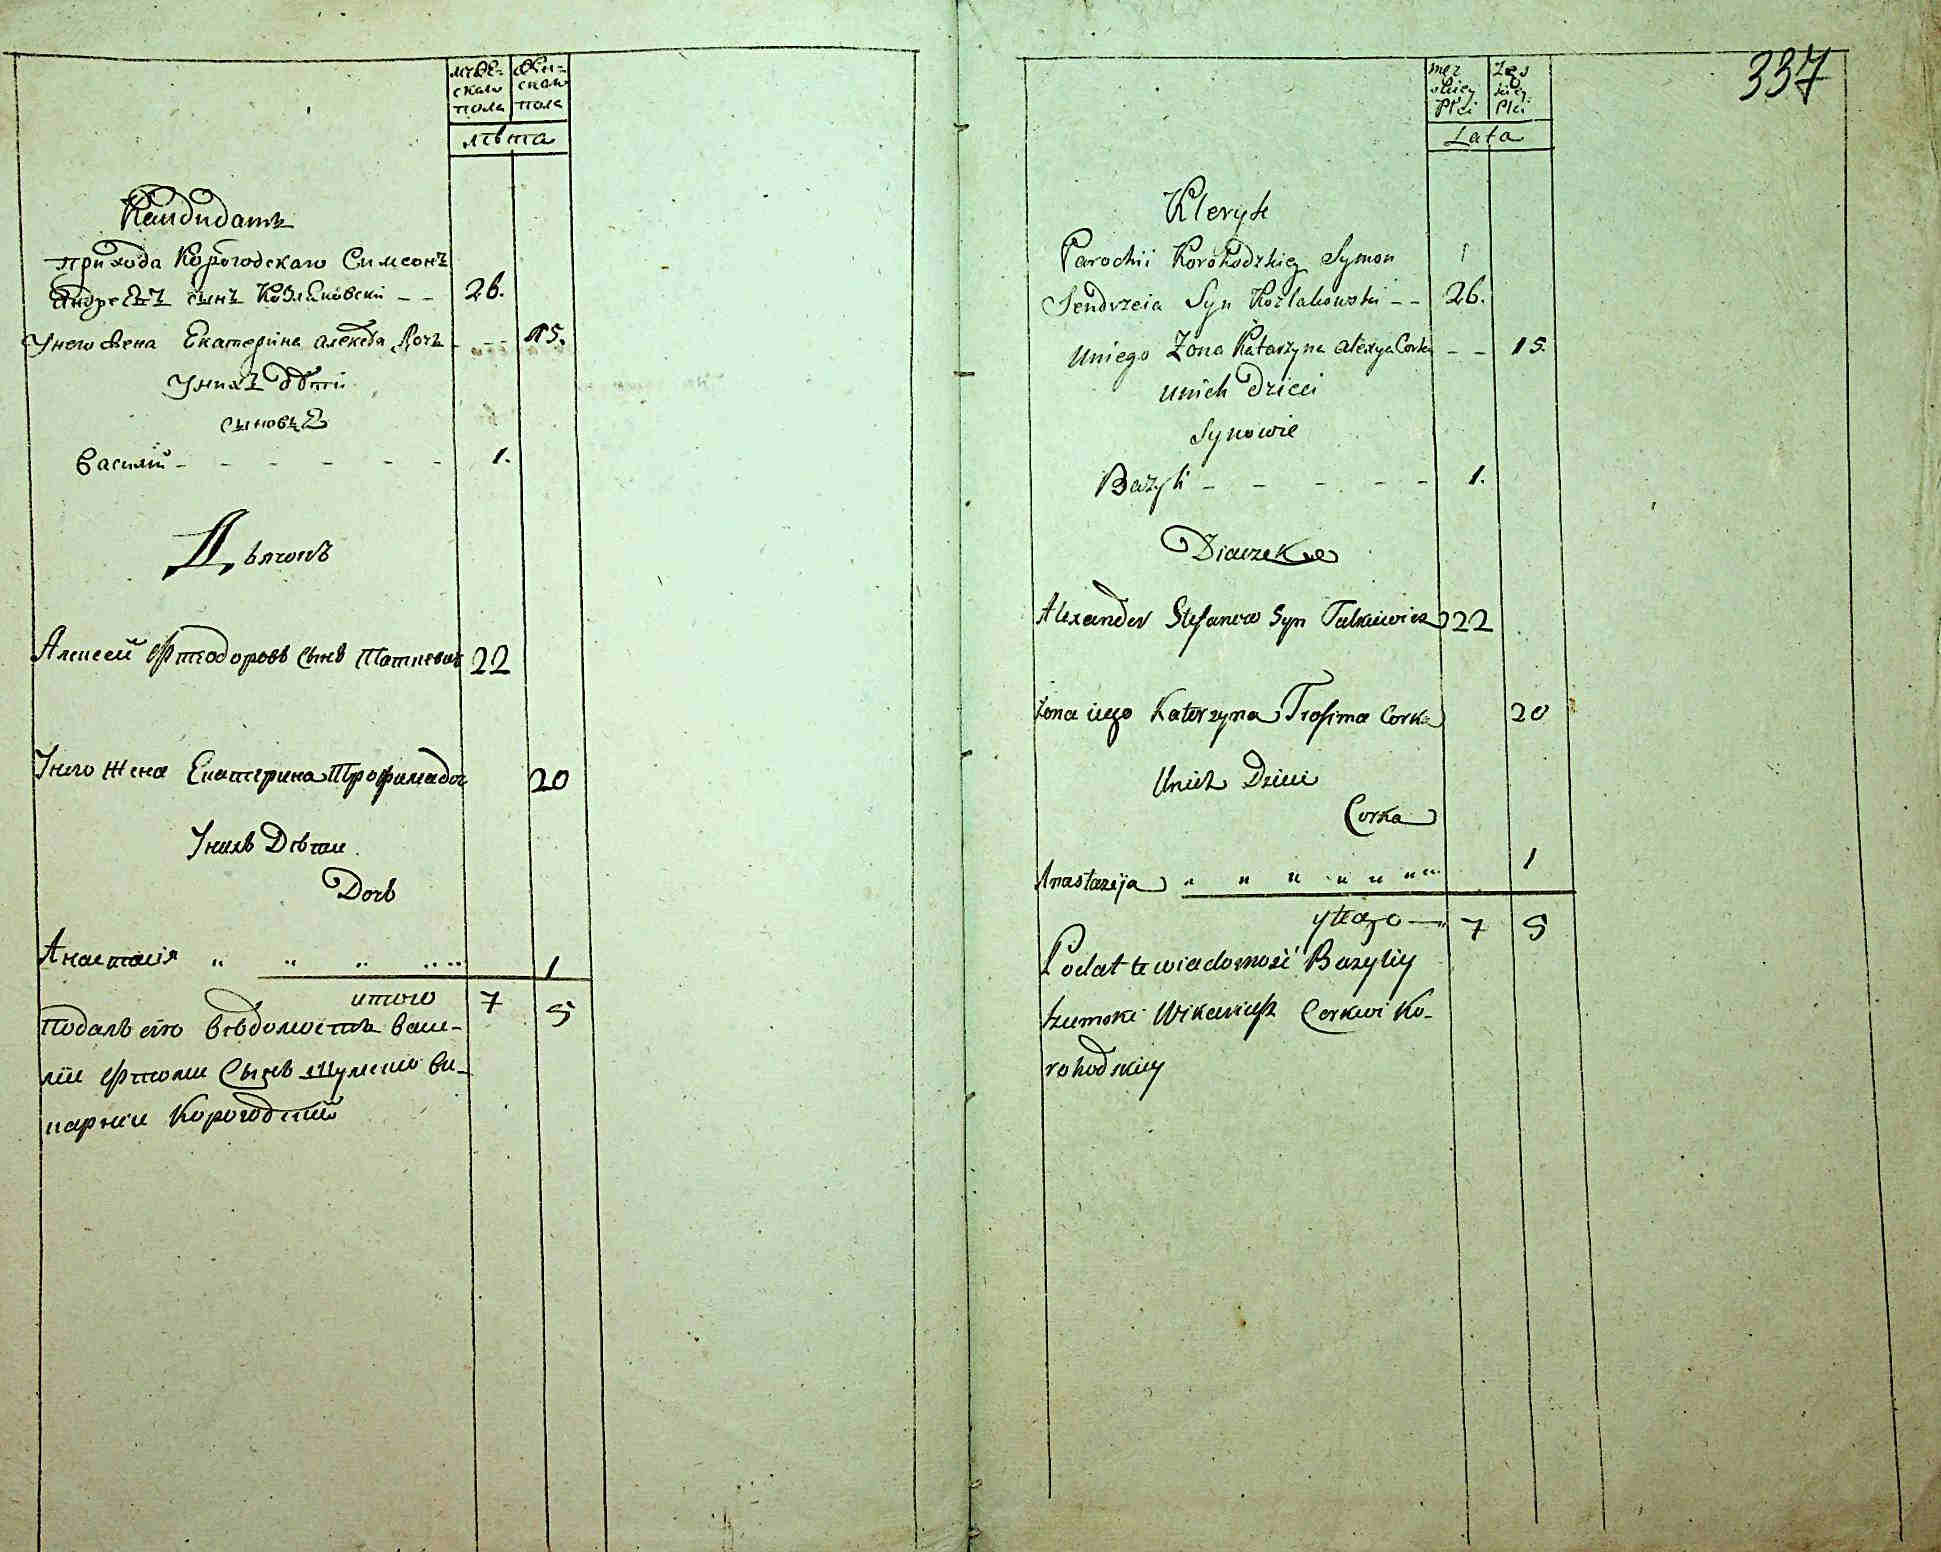 муже-
скаго
пола
жен-
скаго
пола
лѣта
Кандидатъ
прихода Корогодскаго Симеонъ
Андреевъ сынъ Козляковскій - - 26.
Унего жена Екатерина Алексѣя Дочь - - - 15.
Унихъ дѣти
сыновья
Василій - - - - - - 1.
Дьячокъ
Алексей Фтеодоровъ Сынъ 22
Унего жена Екатерина Трофимадоч 20
Унихъ Дѣти
Дочь
Анастасія " " " " " 1
итого 7 5
Подалъ сію вѣдомость Васи-
лій Сынъ Шумский ви-
карий Корогодский
337
męz
skiey
Płci
Zęs
kiey
Płci
Lata
Kleryk
Parochii Korohodzkiey Symon
Jendrzeia Syn Kozlakowski - - 26.
Uniego Zona Katarzyna Alexya Corka - - 15.
Unich Dzieci
Synowie
Bazyli - - - - - 1.
Diaczek
Alexander Stefanow Syn 22
Zona iego Katerzyna Trofima Corka 20
Unich Dzieci
Corka
Anastazija " " " " " " " 1
ytego — 7 5
Podał te wiadomość Bazyliy
Szumski Wikariusz Cerkwi Ko-
rohodskiey